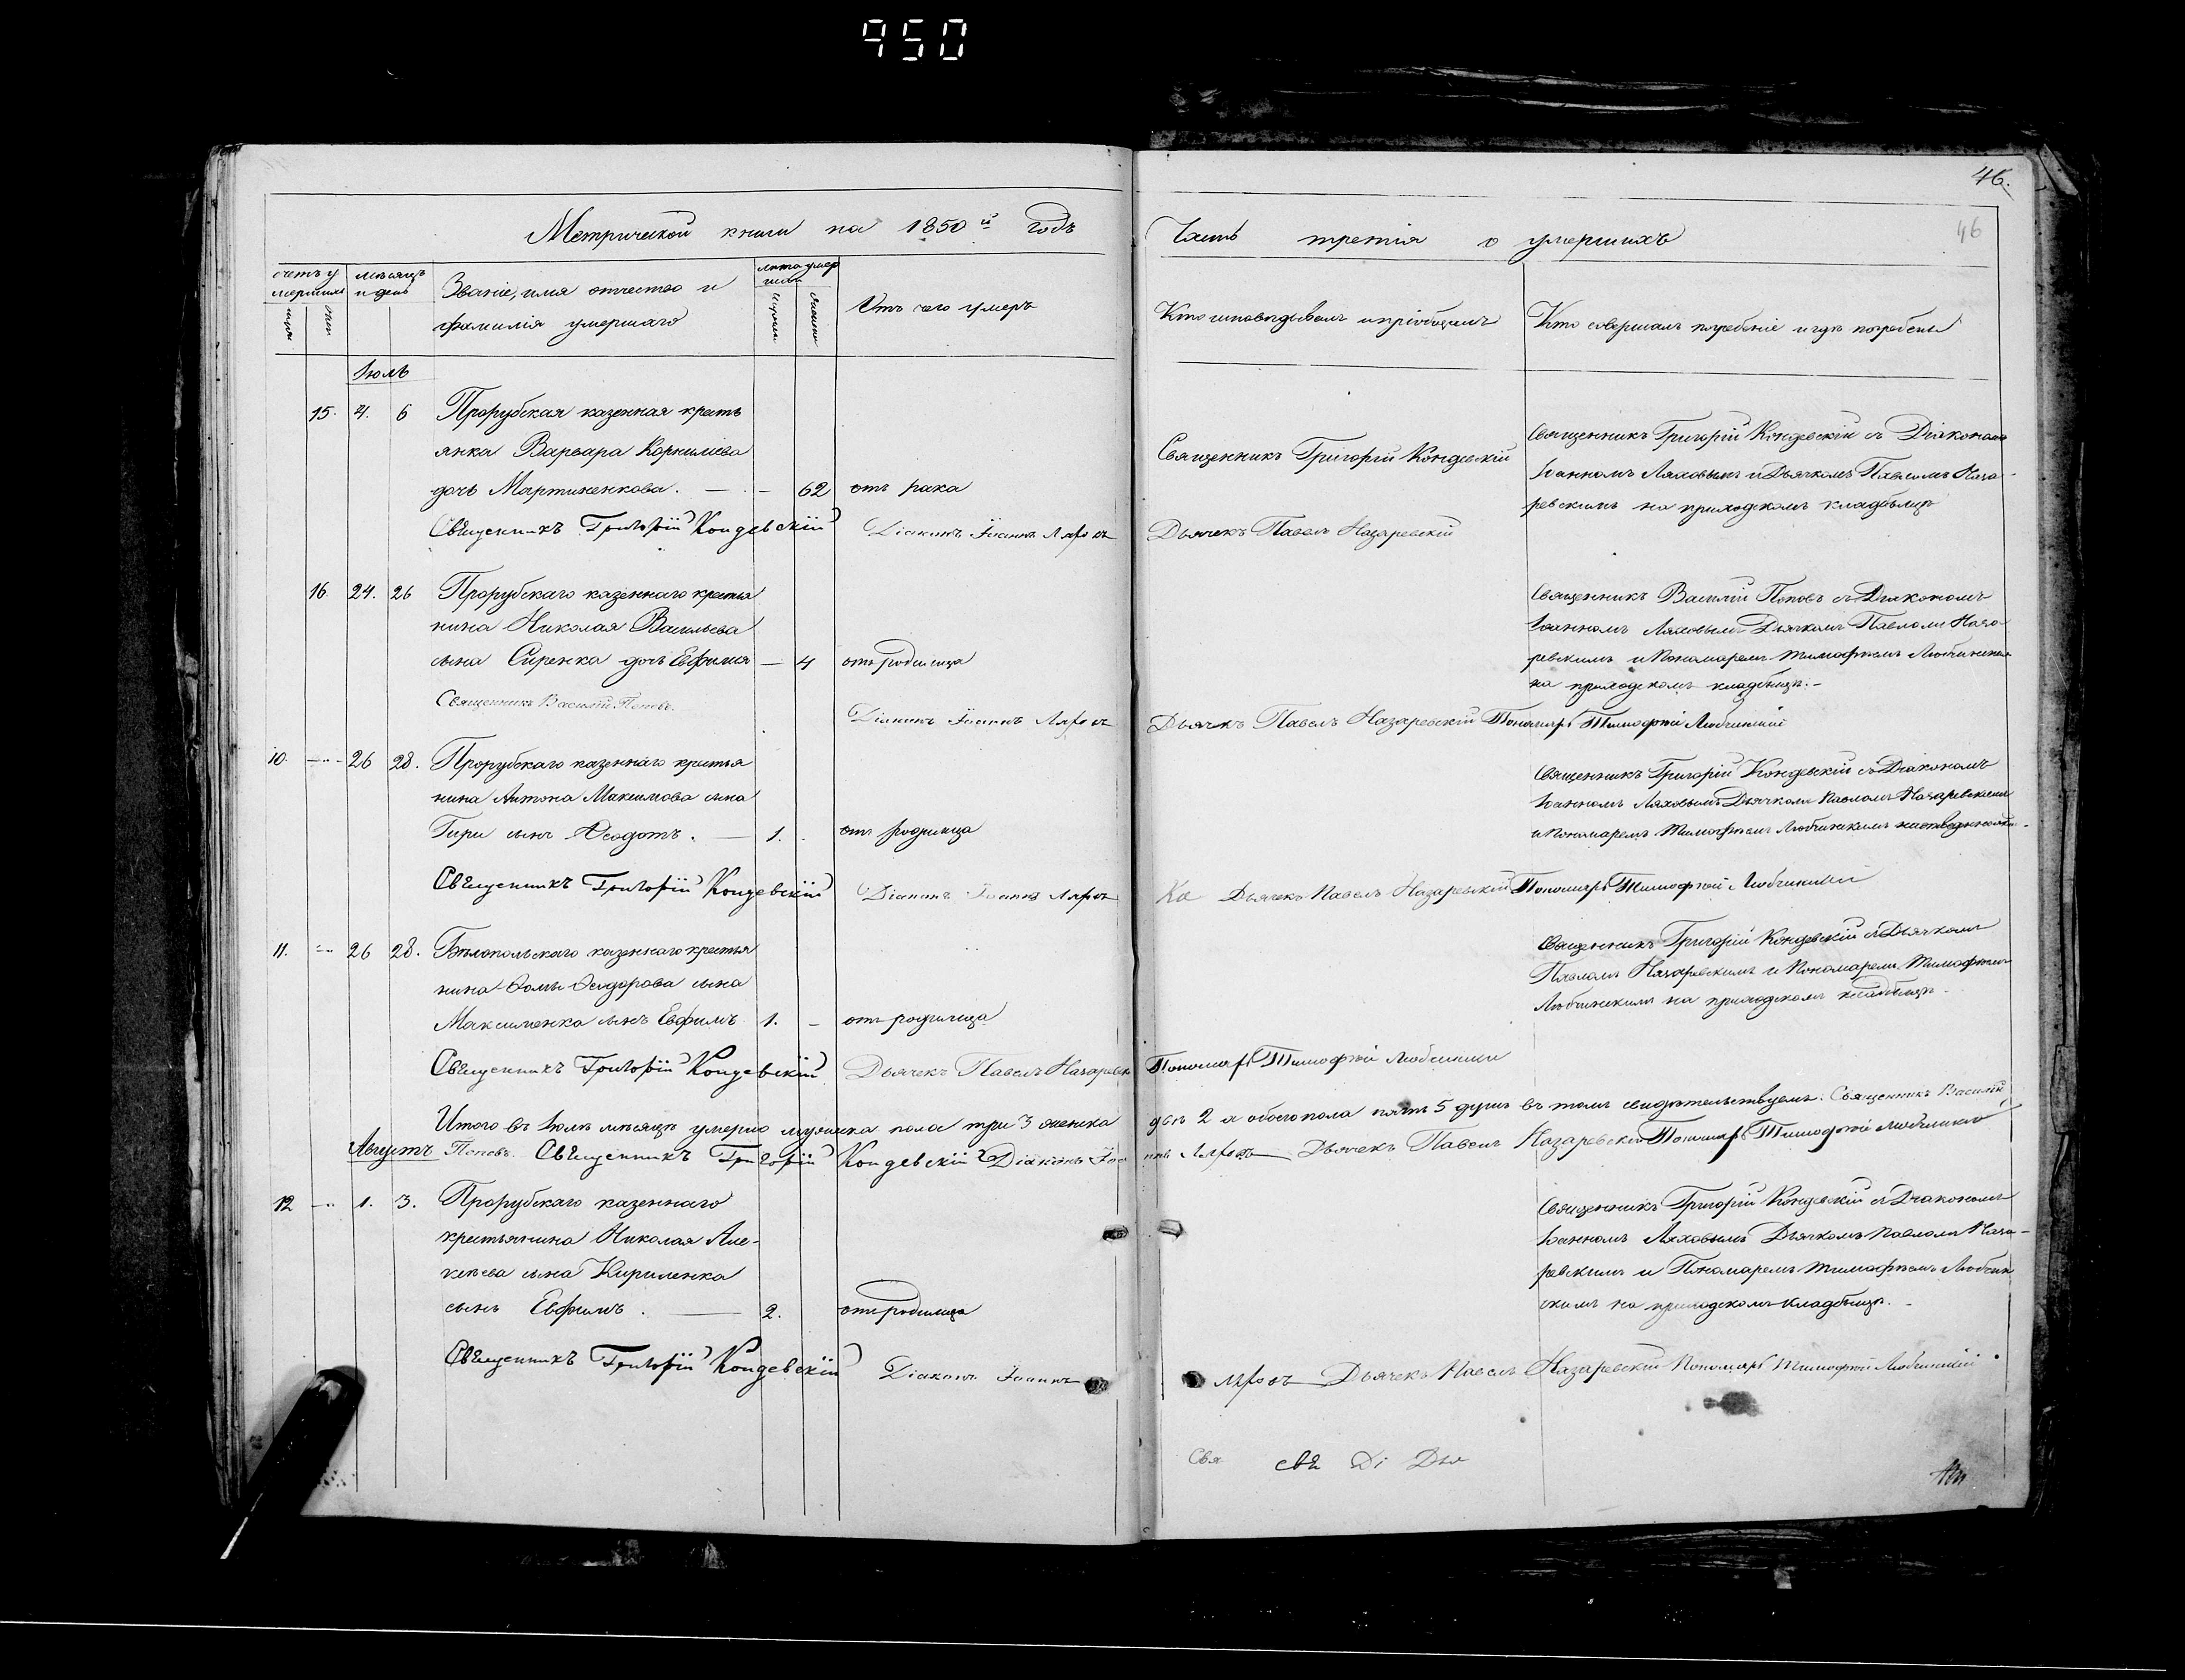 950
46.
46
Метрической книги на 1850й годъ
Часть третія о умершихъ
счетъ у мѣсяцъ Званіе, имя отчество и лѣта умер Отъ чего умеръ
мершихъ и день фамилія умершаго
Кто исповѣдывалъ и пріобщалъ Кто совершалъ погребеніе и гдѣ погребены
Іюль
15. 4. 6 Прорубская казенная кресть
янка Варвара Корниліева
дочь Мартиненкова. — 62 отъ рака
Священникъ Григорій Кондевскій Діаконъ Іоаннъ
Священникъ Григорій Кондевскій
Священникъ Григорій Кондевскій съ Діакономъ
Іоанномъ Ляховымъ и Дьячкомъ Павломъ Наза-
ревскимъ на приходскомъ кладбищѣ
Дьячекъ Павелъ Назаревскій
16. 24. 26 Прорубскаго казеннаго крестья
нина Николая Васильева
сына Сиренка дочь Евфимія — 4 отъ родимца
Священникъ Василій Поповъ.
Діаконъ Іоаннъ
Священникъ Василій Поповъ съ Діакономъ
Іоанномъ Ляховымъ Дьячкомъ Павломъ Наза-
ревскимъ и Пономаремъ Тимофѣемъ
на приходскомъ кладбищѣ.-
Дьячекъ Павелъ Назаревскій Пономарь Тимофѣй
10. — 26 28. Прорубскаго казеннаго крестья
нина Антона Максимова сына
Гири сынъ Ѳеодотъ. — 1. отъ родимца
Священникъ Григорій Кондевскій Діаконъ Іоаннъ
Священникъ Григорій Кондевскій съ Діакономъ
Іоанномъ Ляховымъ Дьячкомъ Павломъ Назаревскимъ
и Пономаремъ Тимофѣемъ
Ка Дьячекъ Павелъ Назаревскій Пономарь Тимофѣй
11. — 26 28. Бѣлопольскаго казеннаго крестья
нина Ѳомы сына
Максименка сынъ Евфимъ 1. - отъ родимца
Священникъ Григорій Кондевскій Дьячекъ Павелъ Назаревск
Священникъ Григорій Кондевскій съ Дьячкомъ
Павломъ Назаревскимъ и Пономаремъ Тимофѣемъ
на приходскомъ кладбищѣ.
Пономарь Тимофѣй
Итого въ Іюлѣ мѣсяцѣ умерло мужеска пола три 3 женска двѣ 2 а обоего пола пять 5 душъ въ томъ свидѣтельствуемъ. Священникъ Василій
Августъ Поповъ. Священникъ Григорій Кондевскій Діаконъ Іоаннъ Дьячекъ Павелъ Назаревскій Пономарь Тимофѣй
12 — 1. 3. Прорубскаго казеннаго
крестьянина Николая Але-
ксѣева сына Кириленка
сынъ Евфимъ. — 2. отъ родимца
Священникъ Григорій Кондевскій Діаконъ Іоаннъ
Священникъ Григорій Кондевскій съ Діакономъ
Іоанномъ Ляховымъ Дьячкомъ Павломъ Наза-
ревскимъ и Пономаремъ Тимофѣемъ
скимъ на приходскомъ кладбищѣ.
Дьячекъ Павелъ Назаревскій Пономарь Тимофѣй
Свя Свя Ді Дья